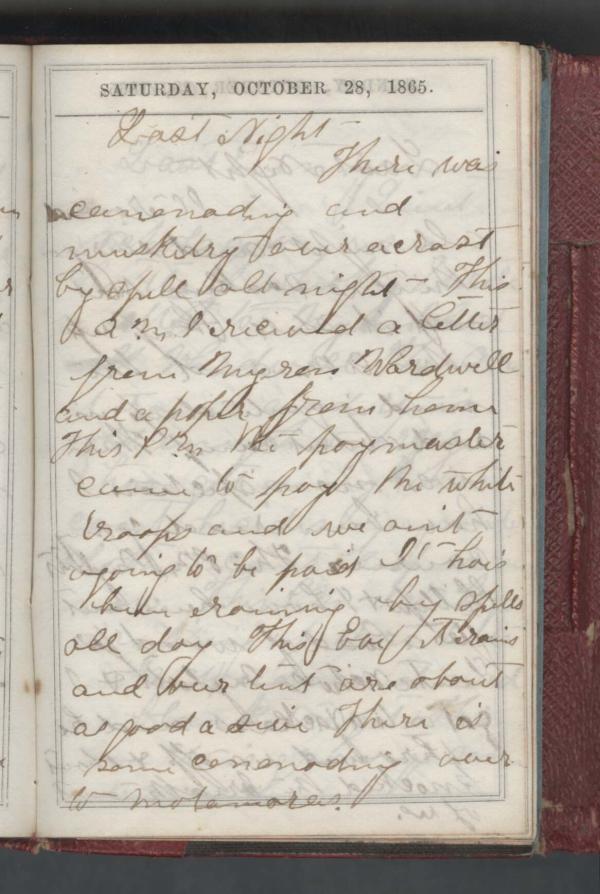 SATURDAY, OCTOBER 28, 1865.
Last Night
There was
canenading and
muskdry over acrost
by spell all night - This
A M I recieved a letter
from Myron Wardwell
and a paper from home
This P M the paymaster
came to pay the white
troops and we aint
agoing to be paid It has
been raining by spells
all day This Eve it rains
and our tent are about
as good a sive There is
some canenading over
to Matamoras.